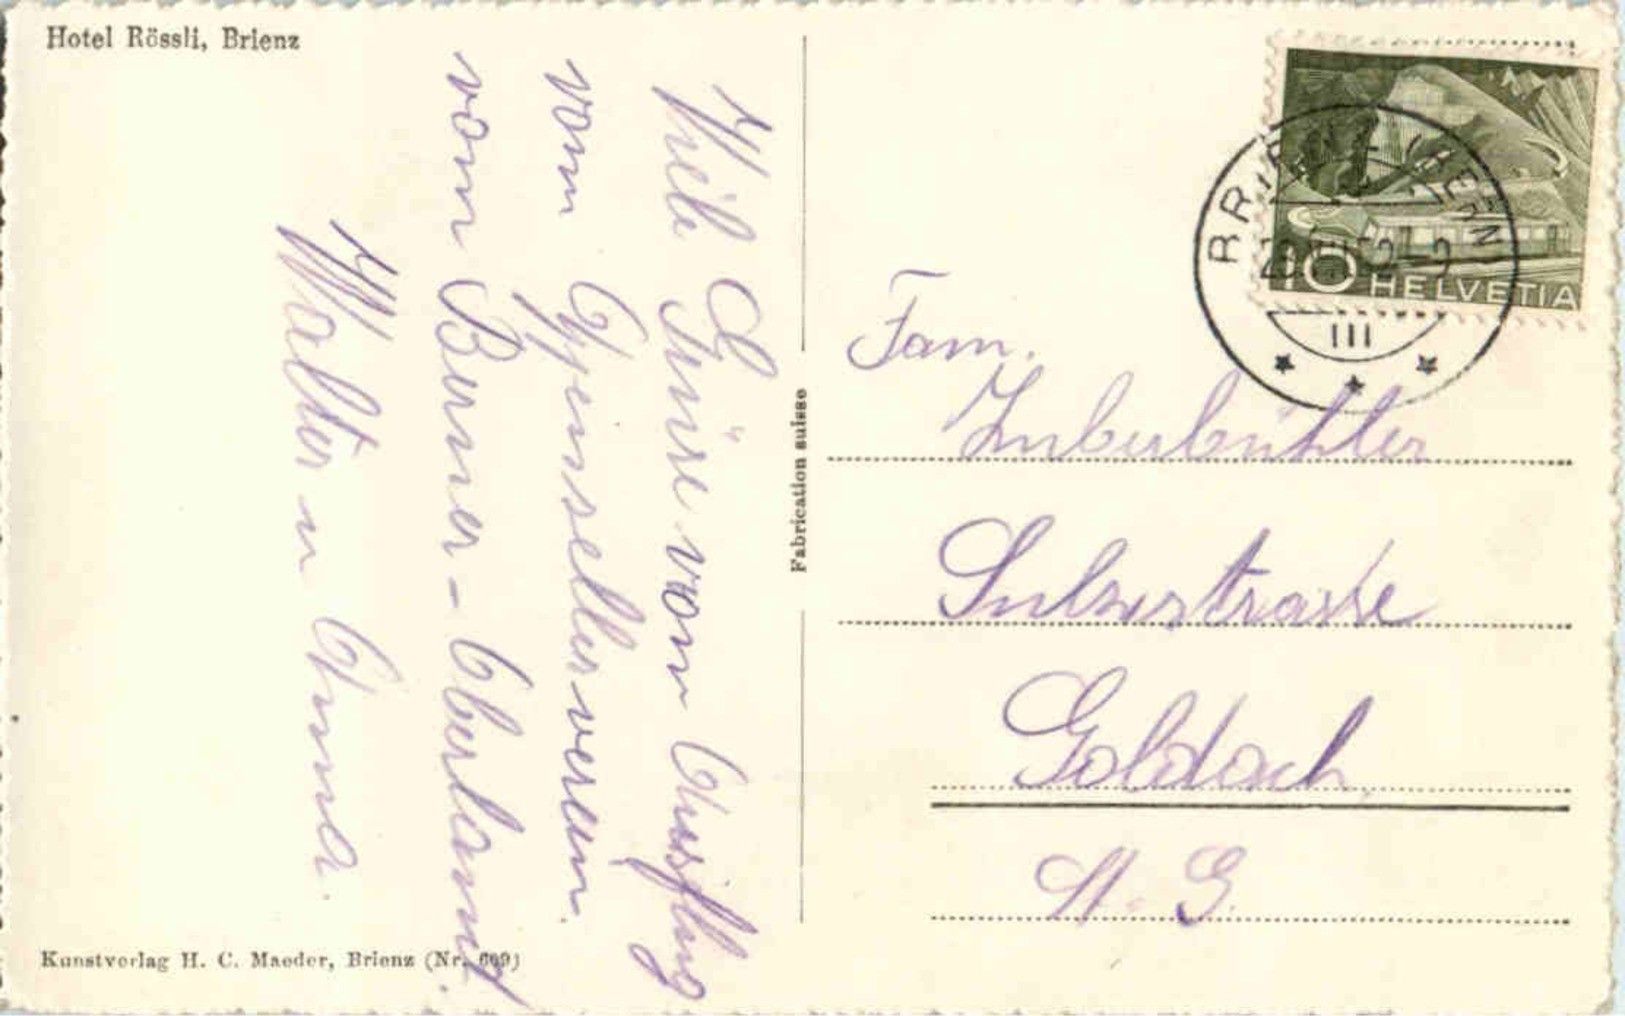 Hotel Rössli, Brienz
Viele Grüsse vom Ausflug
vom Gehilfenverein
vom Berner-Oberland.
Walter u Anna.
Fabrication suisse
Kunstverlag H. C. Maeder, Brienz (Nr. 609)
10 HELVETIA
BRIENZ (BERN)
III
Fam.
Zuberbühler
Sulzstrasse
Goldach
St. G.